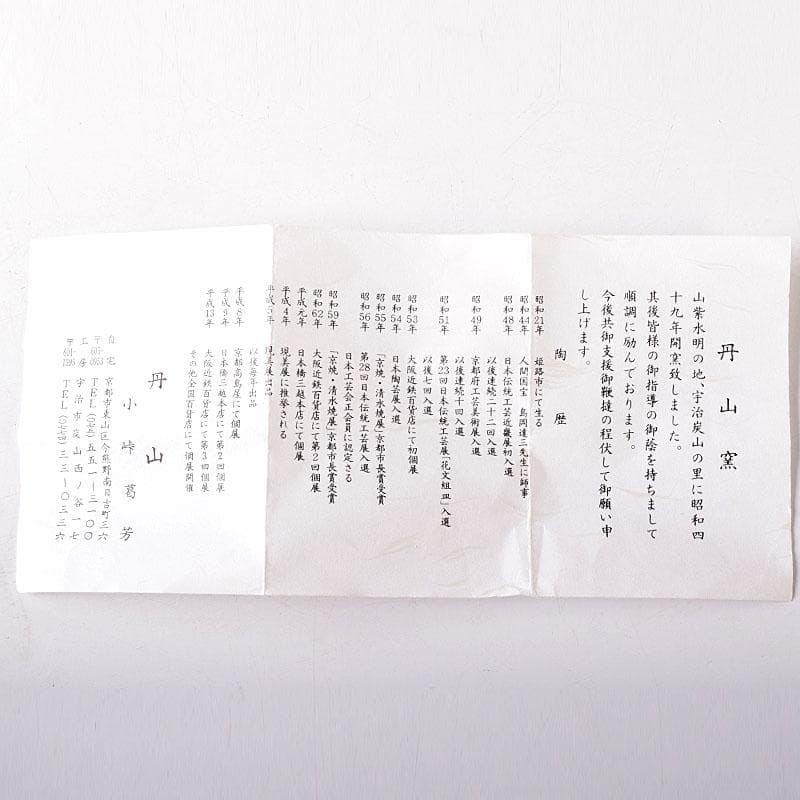 丹山窯
山紫水明の地、宇治炭山の里に昭和四
十九年開窯致しました。
其後皆様の御指導の御陰を持ちまして
順調に励んでおります。
今後共御支援御鞭撻の程伏して御願い申
し上げます。
陶歴
昭和21年 姫路市にて生る
昭和44年 人間国宝 島岡達三先生に師事
昭和48年 日本伝統工芸近畿展初入選
以後連続二十二回入選
昭和49年 京都府工芸美術展入選
以後連続十回入選
昭和51年 第23回日本伝統工芸展「花文組皿」入選
以後七回入選
昭和53年 大阪近鉄百貨店にて初個展
昭和54年 日本陶芸展入選
昭和55年 「京焼・清水焼展」京都市長賞受賞
昭和56年 第28回日本伝統工芸展入選
日本工芸会正会員に認定さる
昭和59年 「京焼・清水焼展」京都市長賞受賞
昭和62年 大阪近鉄百貨店にて第2回個展
平成元年 日本橋三越本店にて個展
平成4年 現美展に推挙される
平成5年 現美展出品
以後毎年出品
平成8年 京都高島屋にて個展
平成9年 日本橋三越本店にて第2回個展
平成13年 大阪近鉄百貨店にて第3回個展
その他全国百貨店にて個展開催
丹山
小峠葛芳
自宅 京都市東山区今熊野南日吉町三六
〒605-0953 TEL(〇七五)五五一―三一〇〇
工房 宇治市炭山西ノ谷一七
〒601-1395 TEL(〇七七四)三三―〇三三六